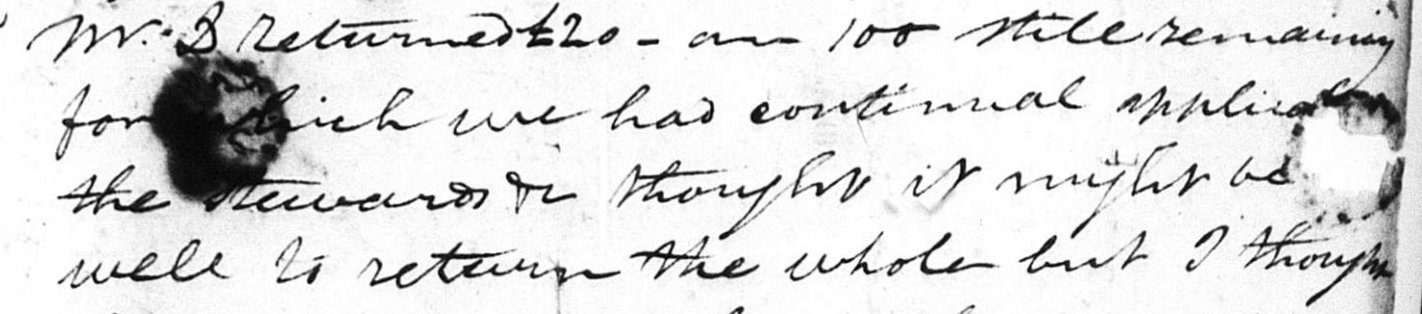 Mr. B returned £20 - an 100 still remaining
for which we had continual applica
the stewards &c thought it might be
well to return the whole but I thought